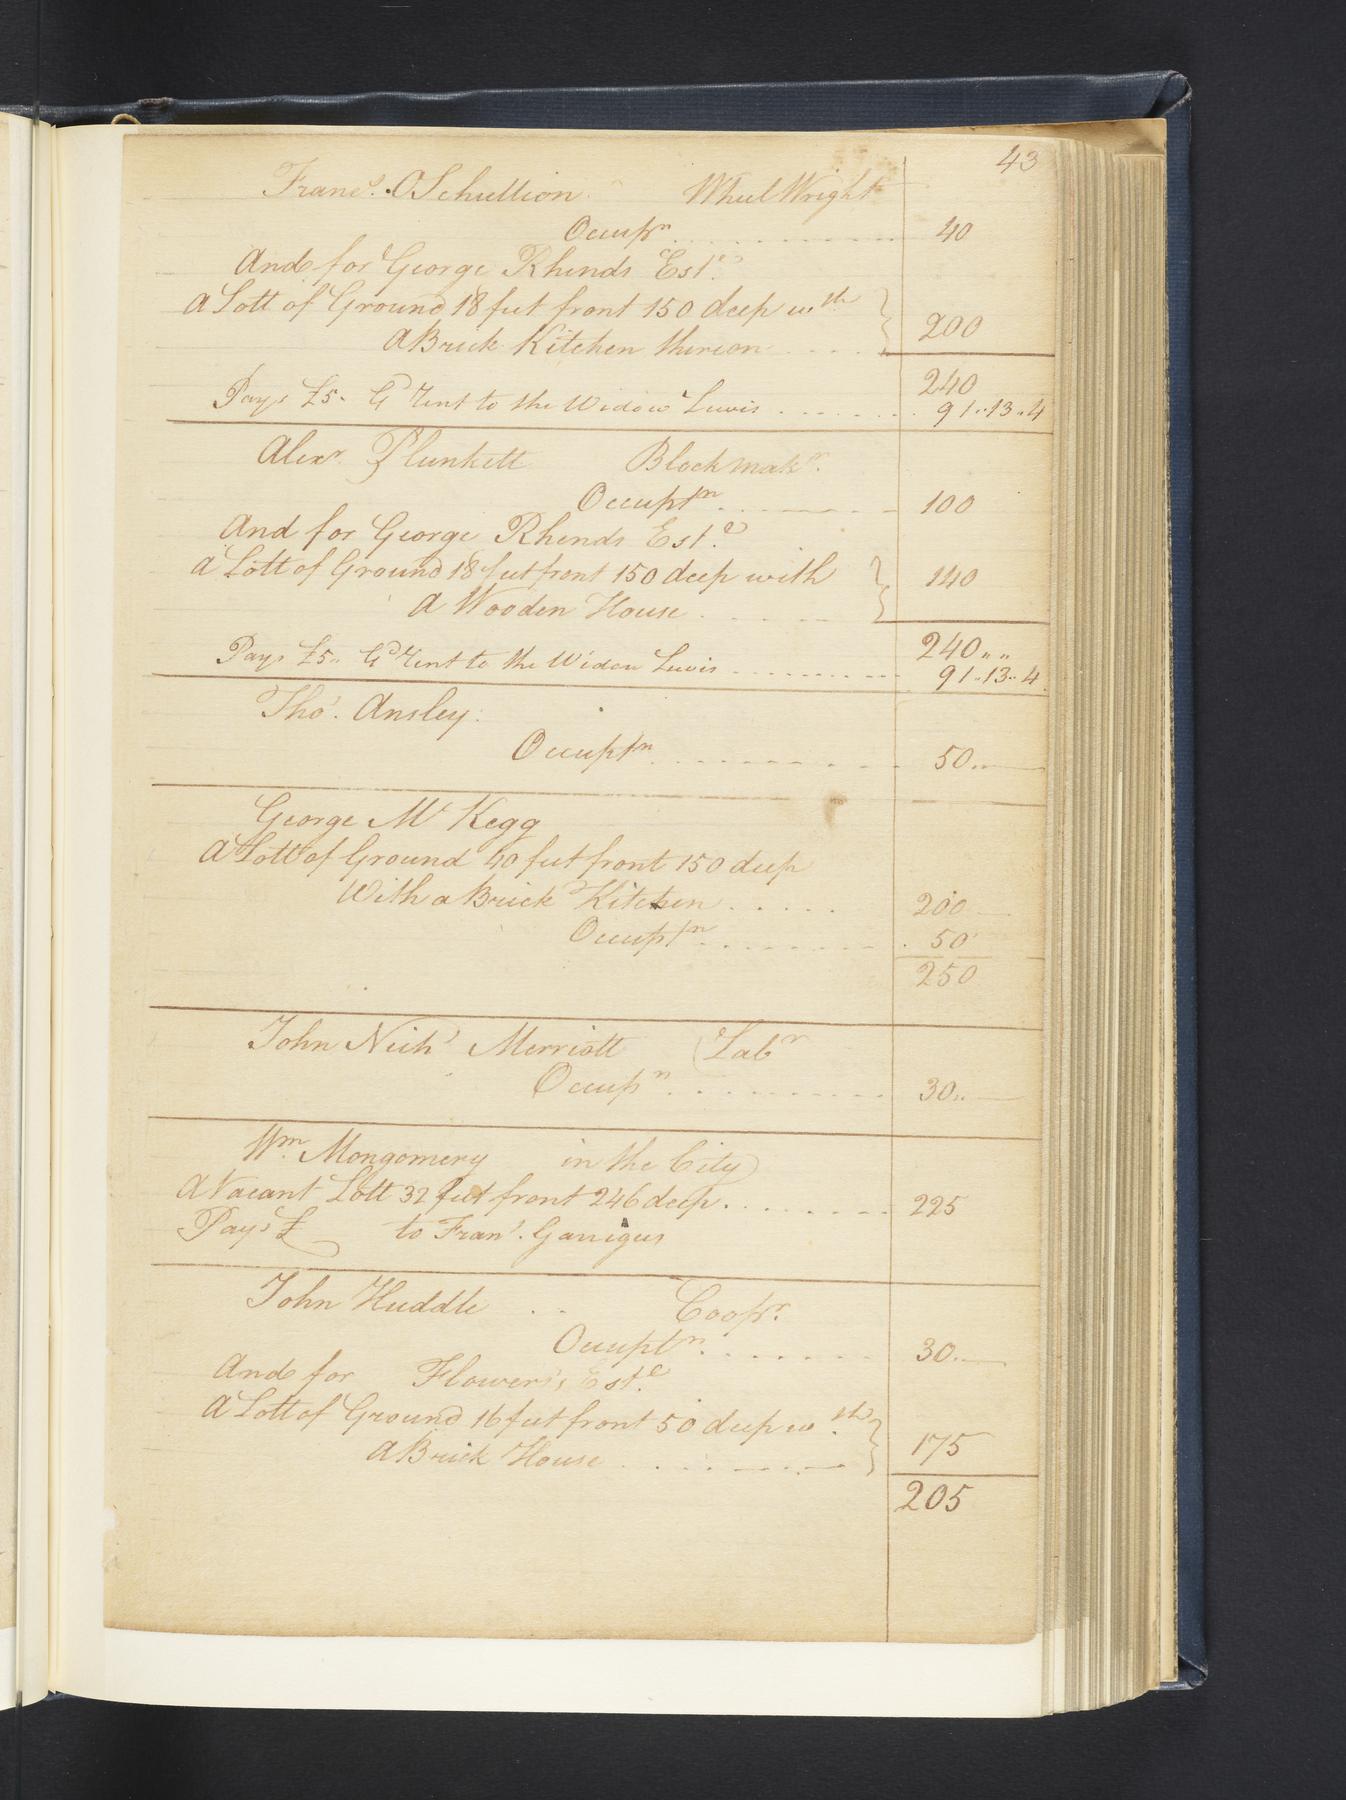 43
Franc.s OSchullion Wheel Wright
Occupn. 40
And for George Rhends Est.e
A Lott of Ground 18 feet front 150 deep wth
A Brick Kitchen thereon 200
240
Pays £5.. Gd Rent to the Widow Lewis 91..13..4
Alexr. Plunkett Block makr.
Occuptn. 100
And for George Rhends Est.e
a Lott of Ground 18 feet front 150 deep with 140
A Wooden House
240.. ..
Pays £5.. Gd Rent to the Widow Lewis 91..13..4
Thos. Ansley.
Occuptn. 50..
George Mc Kegg
A Lott of Ground 40 feet front 150 deep
With a Brick Kitchen 200
Occuptn. 50
250
John Nichs Merriott (Labr
Occupn. 30..
Wm. Mongomery in the City)
A Vacant Lott 32 feet front 246 deep. 225
Pays £ to Frans. Garrigus
John Huddle Coopr.
Occuptn. 30..
And for Flowers's Est.e
A Lott of Ground 16 feet front 50 deep wth
A Brick House 175
205